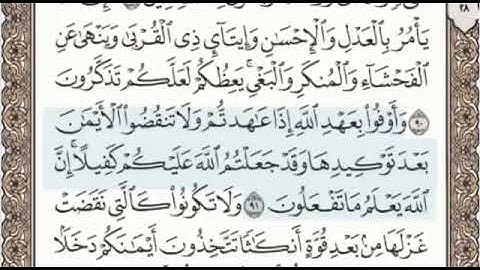 ٢٨
يَأْمُرُ بِالْعَدْلِ وَالْإِحْسَانِ وَإِيتَاءِ ذِي الْقُرْبَىٰ وَيَنْهَىٰ عَنِ
الْفَحْشَاءِ وَالْمُنكَرِ وَالْبَغْيِ ۚ يَعِظُكُمْ لَعَلَّكُمْ تَذَكَّرُونَ
٩٠ وَأَوْفُوا بِعَهْدِ اللَّهِ إِذَا عَاهَدتُّمْ وَلَا تَنقُضُوا الْأَيْمَانَ
بَعْدَ تَوْكِيدِهَا وَقَدْ جَعَلْتُمُ اللَّهَ عَلَيْكُمْ كَفِيلًا ۚ إِنَّ
اللَّهَ يَعْلَمُ مَا تَفْعَلُونَ ٩١ وَلَا تَكُونُوا كَالَّتِي نَقَضَتْ
غَزْلَهَا مِن بَعْدِ قُوَّةٍ أَنكَاثًا تَتَّخِذُونَ أَيْمَانَكُمْ دَخَلًا